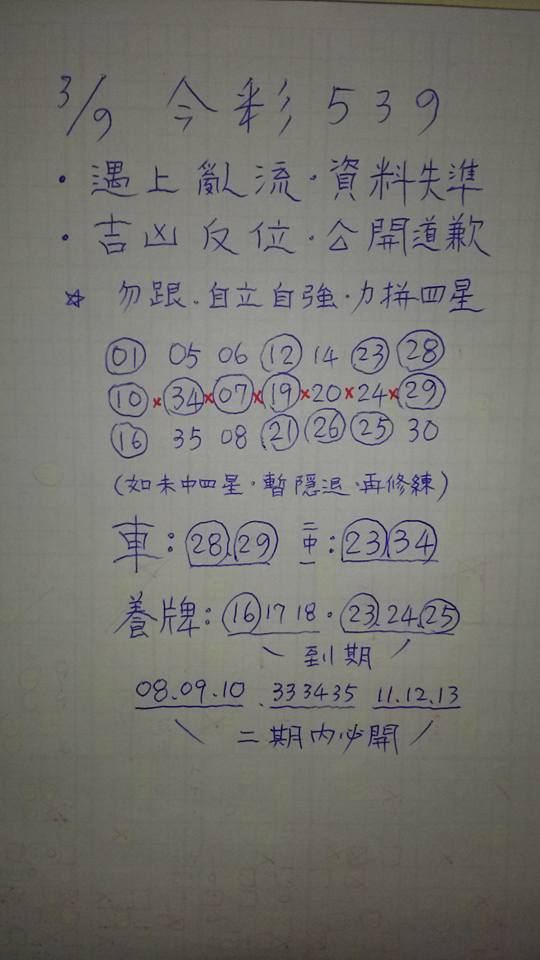 3/9 今彩539
·遇上亂流·資料失準
·吉凶反位·公開道歉
☆ 勿跟.自立自強·力拚四星
01 05 06 12 14 23 28
10×34×07×19×20×24×29
16 35 08 21 26 25 30
(如未中四星,暫隱退·再修練)
車:28.29 二中一:23.34
養牌:16 17 18·23.24.25
到期
08.09.10.333435 11.12.13
二期內必開